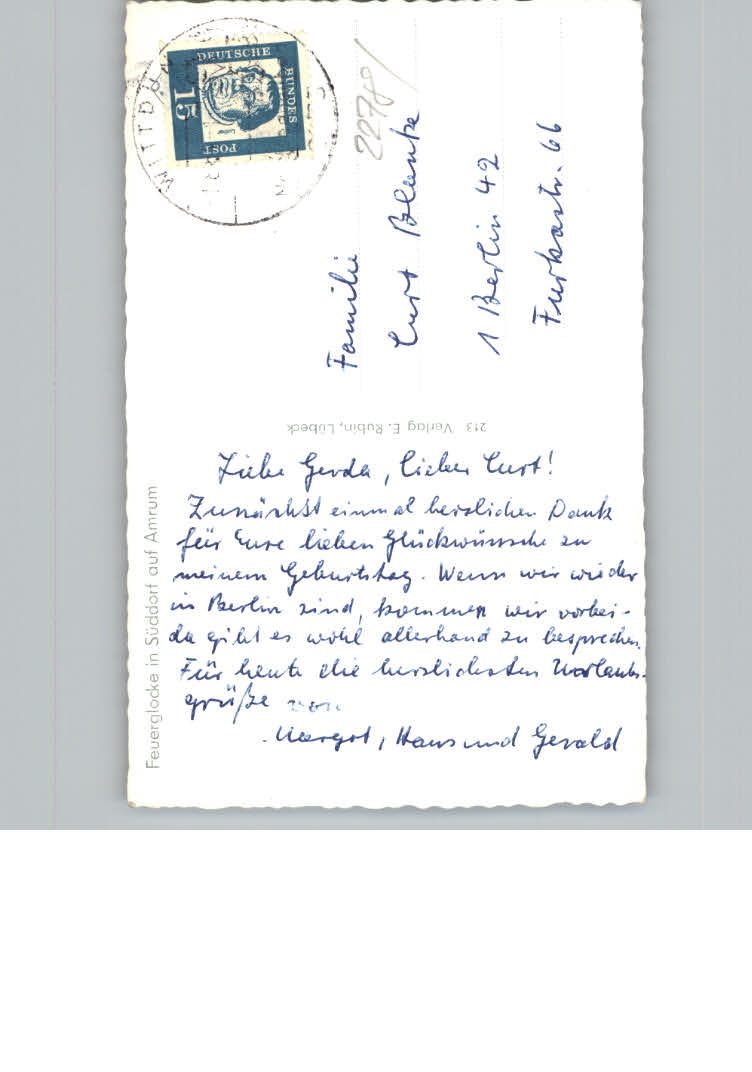 Liebe Gerda, lieber Curt!
Zunächst einmal herzlichen Dank
für Eure lieben Glückwünsche zu
meinem Geburtstag. Wenn wir wieder
in Berlin sind, kommen wir vorbei -
da gibt es wohl allerhand zu besprechen.
Für heute die herzlichsten Urlaubs-
grüße von
Margot, Hans und Gerald
Familie
Curt Blanke
1 Berlin 42
Furkastr. 66
22781
DEUTSCHE
BUNDES
POST
15
Luther
WITTDÜN
213 Verlag E. Rubin, Lübeck
Feuerglocke in Süddorf auf Amrum